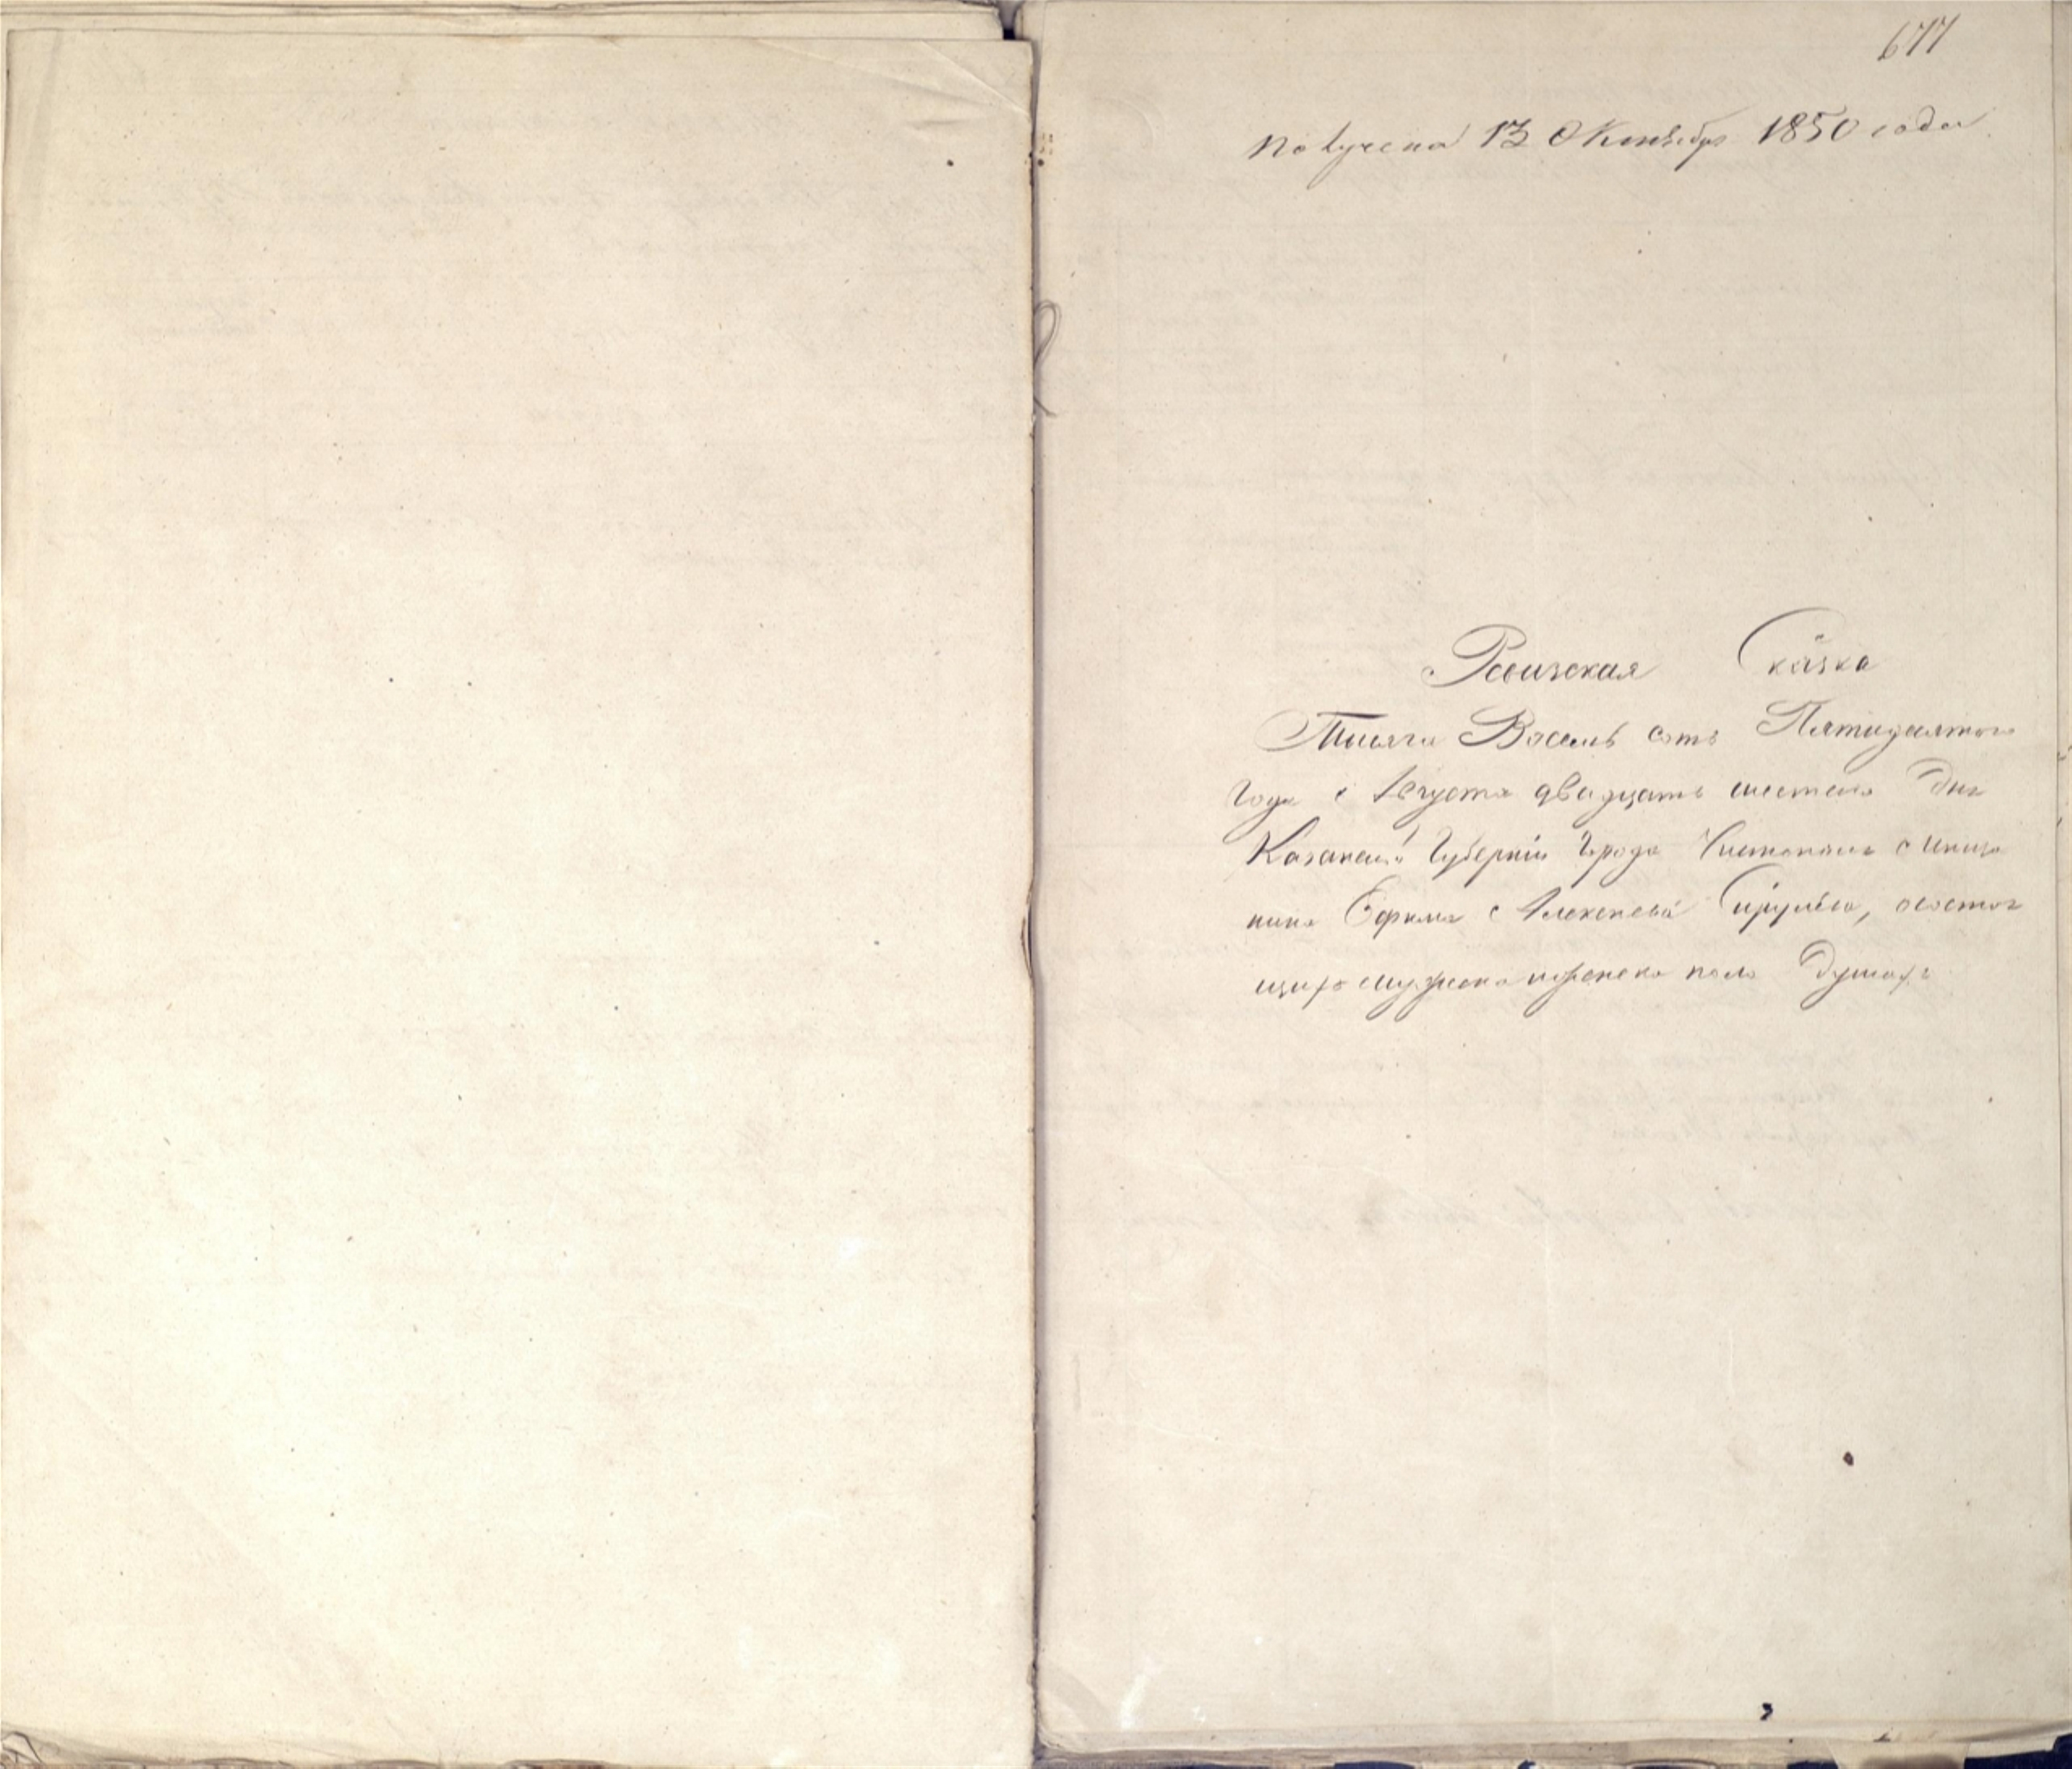 677
Получена 13 Октября 1850 года
Ревизская Сказка
Тысяча Восемь сотъ Пятидесятого
Года Августа двадцать шестого Дня
Казанской Губернии Города Чистополя Меща
нина Ефима Алексеева, о состоя
щихъ мужеска и женска пола Душахъ